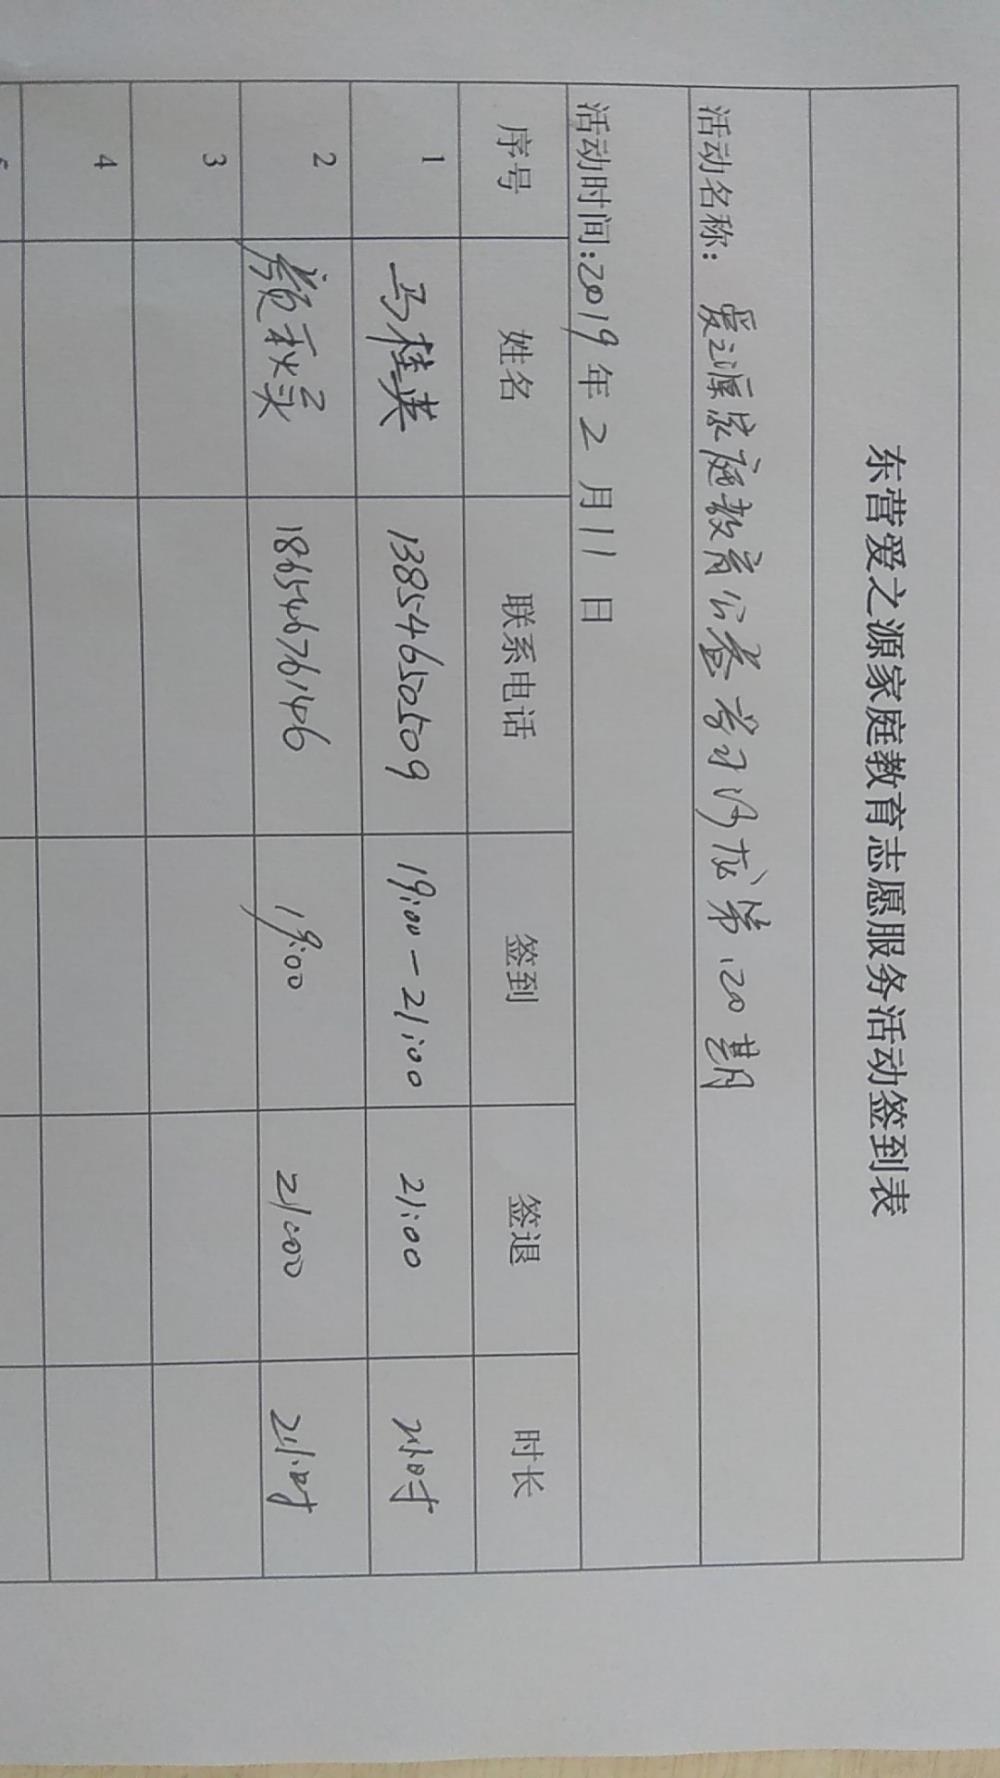 东营爱之源家庭教育志愿服务活动签到表
活动名称: 爱之源家庭教育公益学习沙龙第120期
活动时间:2019年2月11日
序号 姓名 联系电话 签到 签退 时长
1 马桂英 13854650509 19:00-21:00 21:00 2小时
2 颜秋 18654676146 19:00 21:00 2小时
3
4